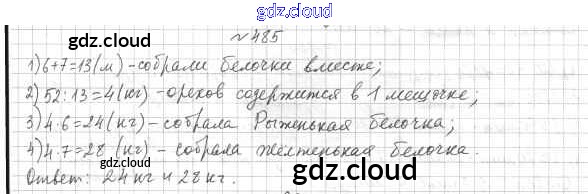 gdz.cloud
№485
gdz.cloud gdz.cloud
1) 6+7=13(м) - собрали белочки вместе;
2) 52:13=4(кг) - орехов содержится в 1 мешочке;
3) 4·6=24(кг) - собрала Рыженькая белочка;
4) 4·7=28 (кг) - собрала Желтенькая белочка.
Ответ: 24 кг и 28 кг.
gdz.cloud gdz.cloud